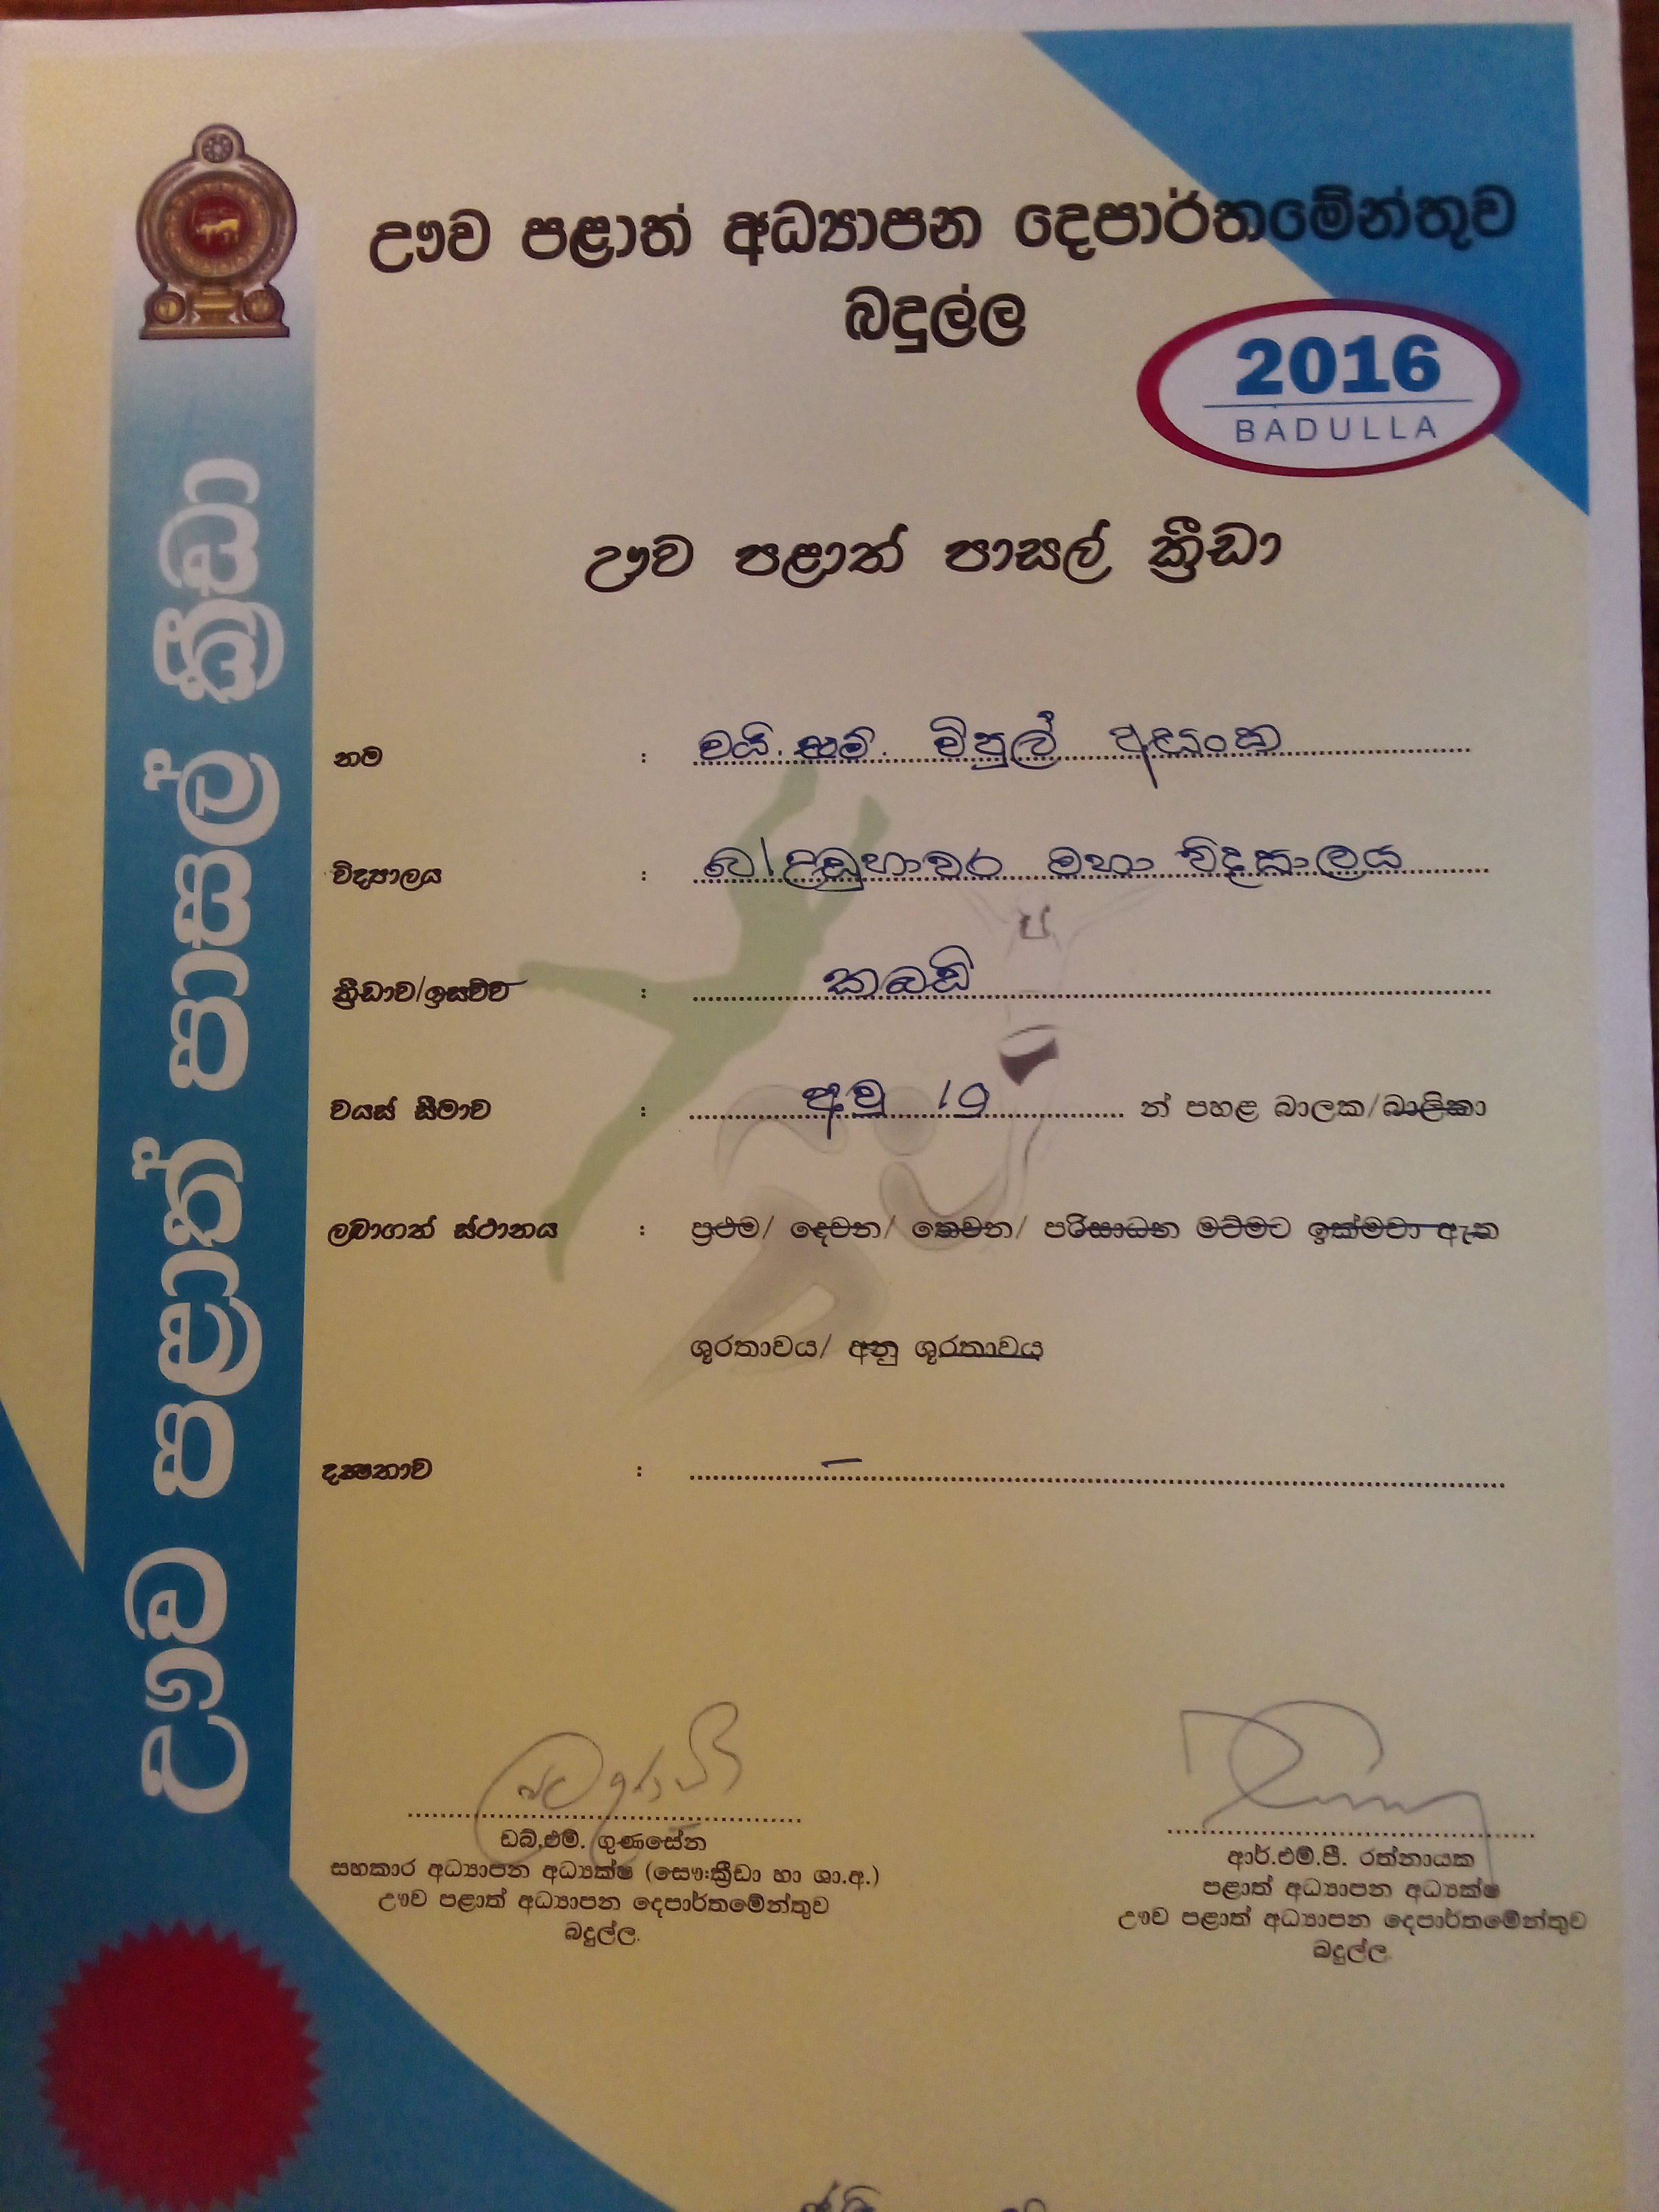 ඌව පළාත් අධ්‍යාපන දෙපාර්තමේන්තුව
බදුල්ල
2016
BADULLA
ඌව පළාත් පාසල් ක්‍රීඩා
ඌව පළාත් පාසල් ක්‍රීඩා
නම : වයි.එම්. විපුල් අසංක
විද්‍යාලය : බ/උඩුහාවර මහා විද්‍යාලය
ක්‍රීඩාව/ඉසව්ව : කබඩි
වයස් සීමාව : අවු 19 න් පහළ බාලක/බාලිකා
ලබාගත් ස්ථානය : ප්‍රථම/ දෙවන/ තෙවන/ පරිසාධන මට්මට ඉක්මවා ඇත
ශූරතාවය/ අනු ශූරතාවය
දක්ෂතාව : –
ඩබ්.එම්. ගුණසේන
සහකාර අධ්‍යාපන අධ්‍යක්ෂ (සෞ:ක්‍රීඩා හා ශා.අ.)
ඌව පළාත් අධ්‍යාපන දෙපාර්තමේන්තුව
බදුල්ල.
ආර්.එම්.පී. රත්නායක
පළාත් අධ්‍යාපන අධ්‍යක්ෂ
ඌව පළාත් අධ්‍යාපන දෙපාර්තමේන්තුව
බදුල්ල